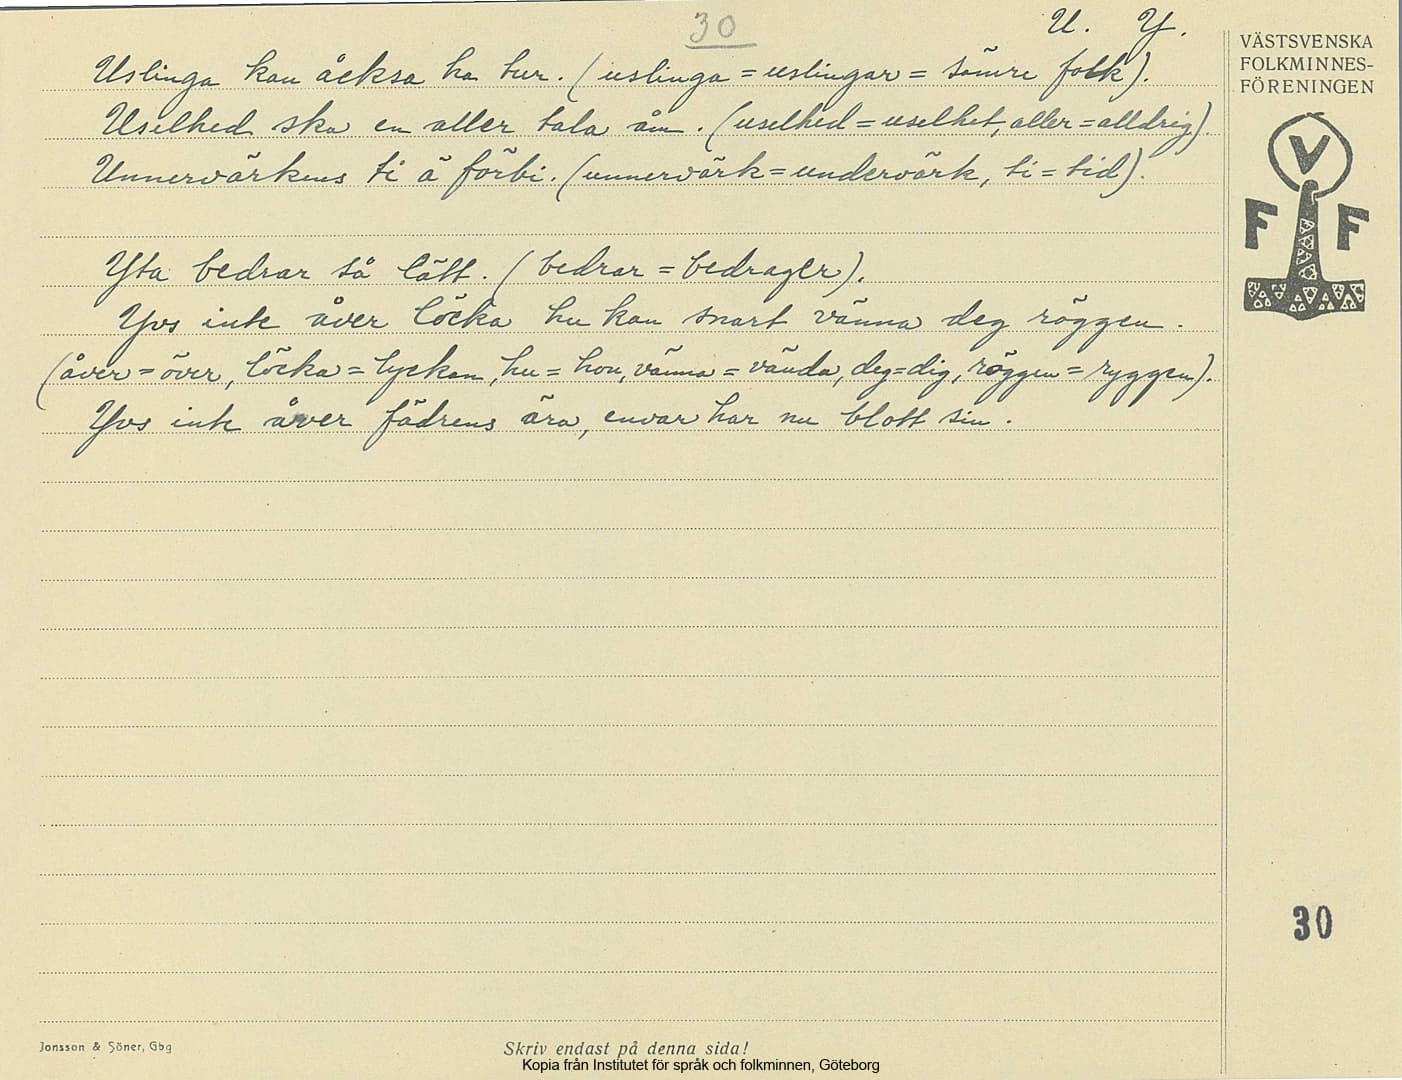 30
U. Y.
Uslinga kan åcksa ha tur. (uslinga = uslingar = sämre folk).
Uselhed ska en aller tala åm. (uselhed = uselhet, aller = alldrig).
Unnervärkens ti ä förbi. (unnervärk = undervärk, ti = tid).
Yta bedrar så lätt. (bedrar = bedrager).
Yvs inte över löcka hu kan snart vänna deg röggen.
(åver = över, löcka = lyckan, hu = hon, vänna = vända, deg = dig, röggen = ryggen).
Yvs inte åver fädrens ära, envar har nu blott sin.
VÄSTSVENSKA
FOLKMINNES-
FÖRENINGEN
V
F F
30
Jonsson & Söner, Gbg
Skriv endast på denna sida!
Kopia från Institutet för språk och folkminnen, Göteborg